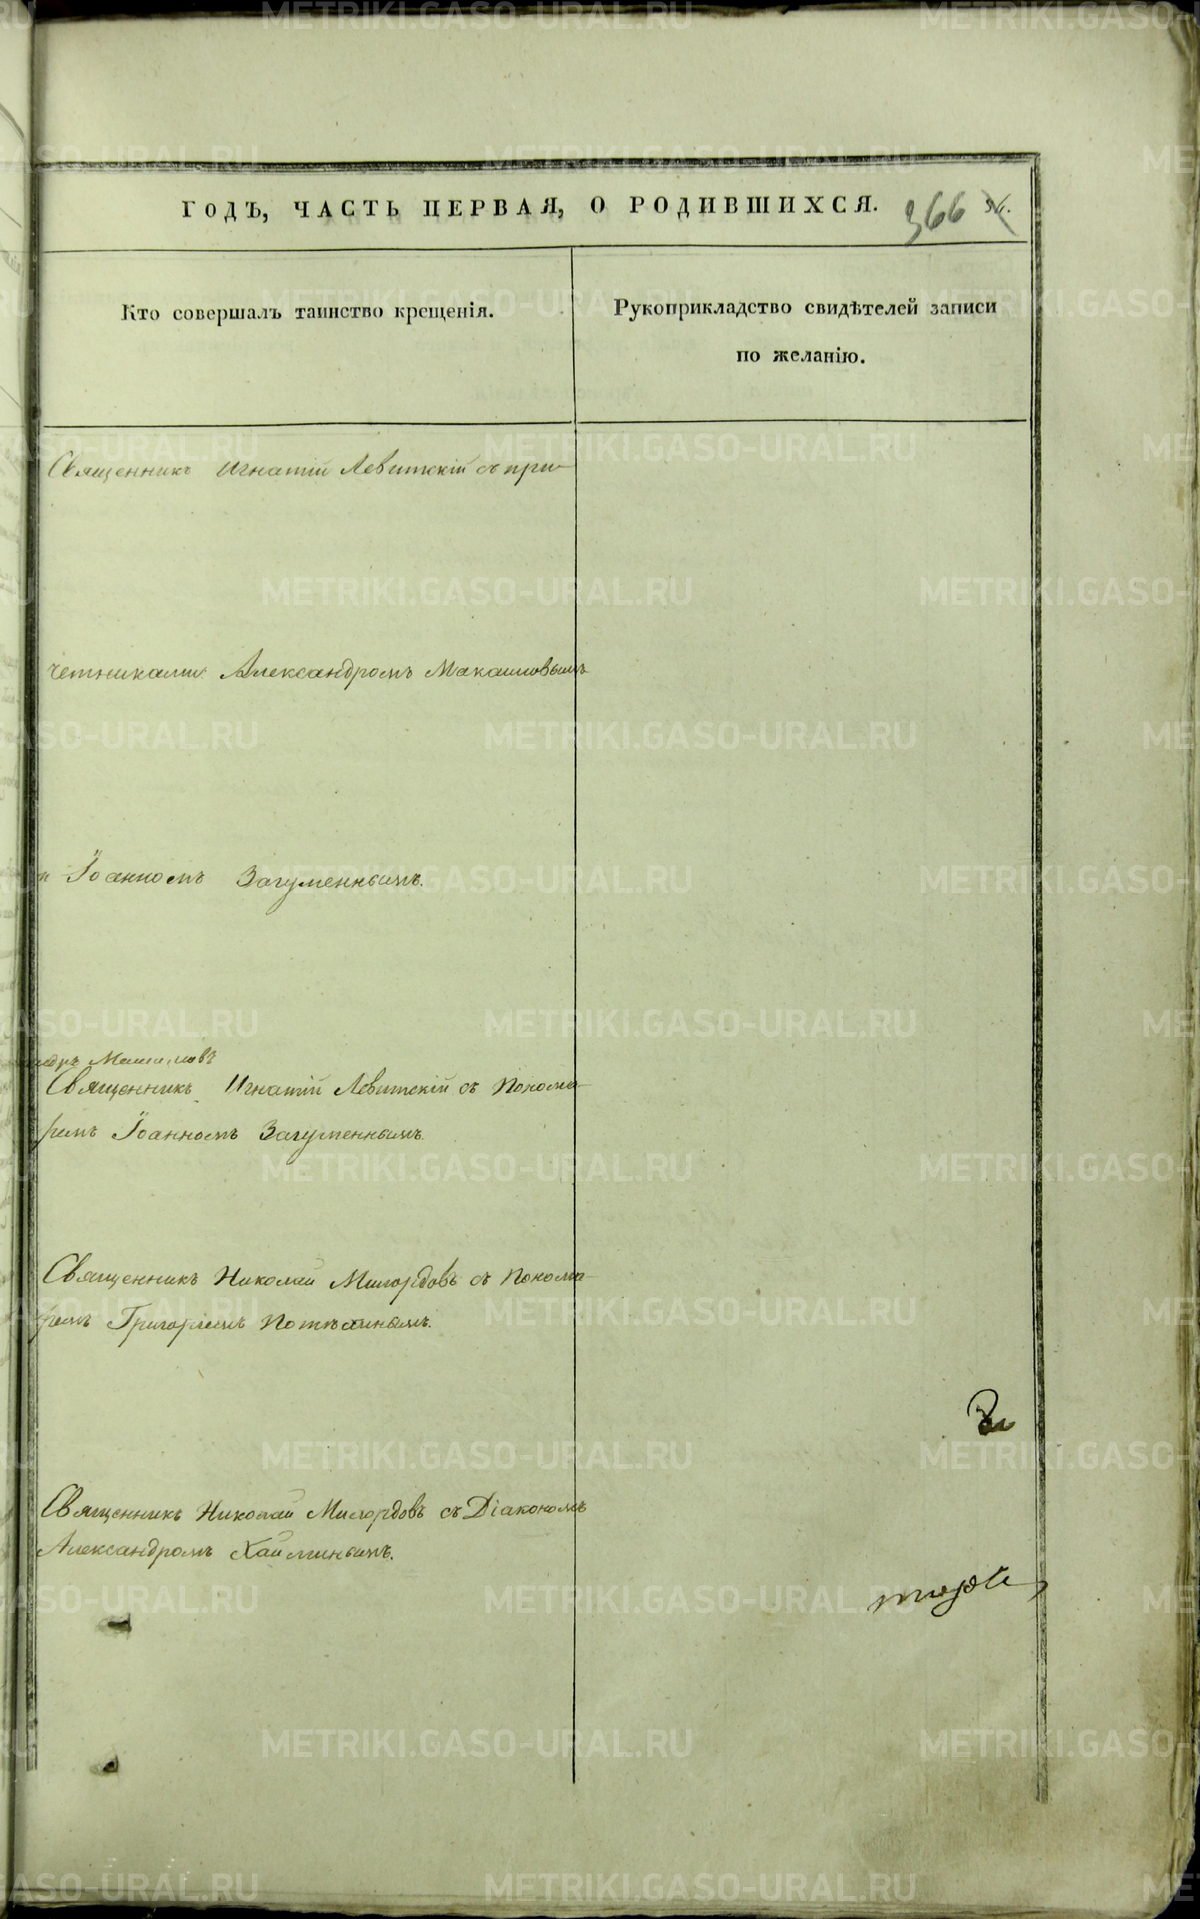 ГОДЪ, ЧАСТЬ ПЕРВАЯ, О РОДИВШИХСЯ. 366
Кто совершалъ таинство крещенія.
Рукоприкладство свидѣтелей записи
по желанію.
Священникъ Игнатій Левитскій съ при-
четниками Александромъ Макашовымъ
и Іоанномъ Загуменнымъ.
Священникъ Игнатій Левитскій съ Понома-
ремъ Іоанномъ Загуменнымъ.
Священникъ Николай Милордовъ съ Понома-
ремъ Григоріемъ
Священникъ Николай Милордовъ съ Діакономъ
Александромъ Хайминымъ.
METRIKI.GASO-URAL.RU